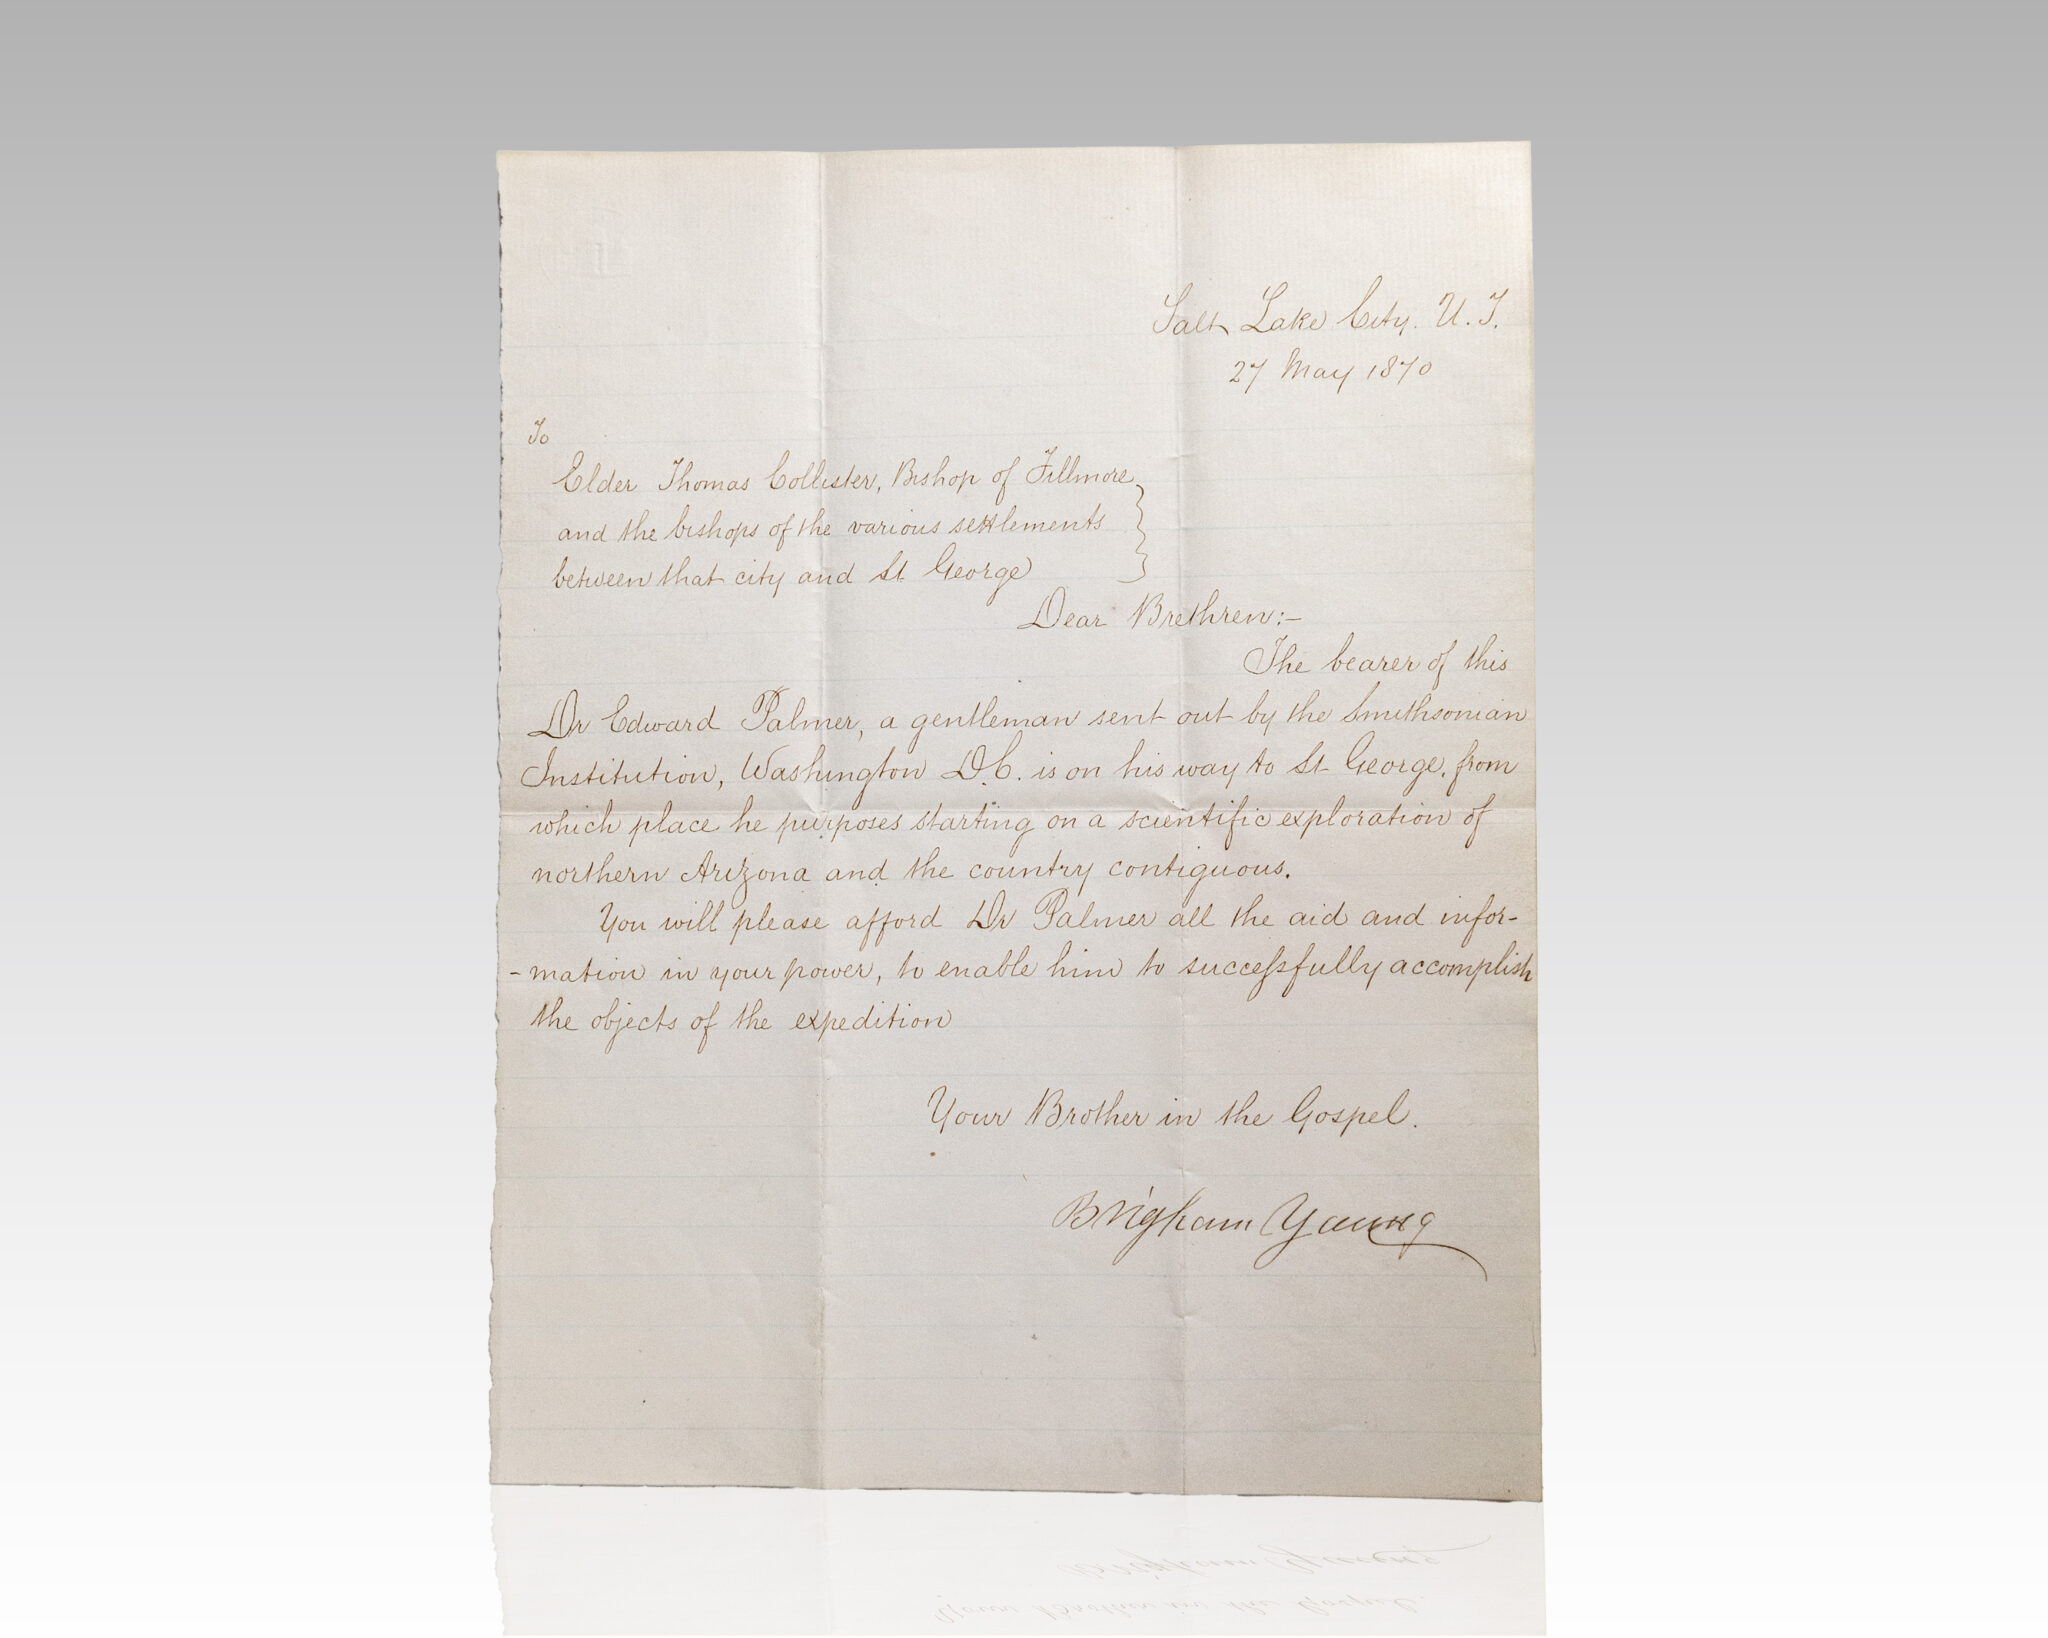 Salt Lake City. U. T.
27 May 1870
To
Elder Thomas Collister, Bishop of Fillmore
and the bishops of the various settlements
between that city and St George
Dear Brethren:-
The bearer of this
Dr Edward Palmer, a gentleman sent out by the Smithsonian
Institution, Washington D.C. is on his way to St George, from
which place he purposes starting on a scientific exploration of
northern Arizona and the country contiguous.
You will please afford Dr Palmer all the aid and infor-
-mation in your power, to enable him to successfully accomplish
the objects of the expedition
Your Brother in the Gospel.
Brigham Young